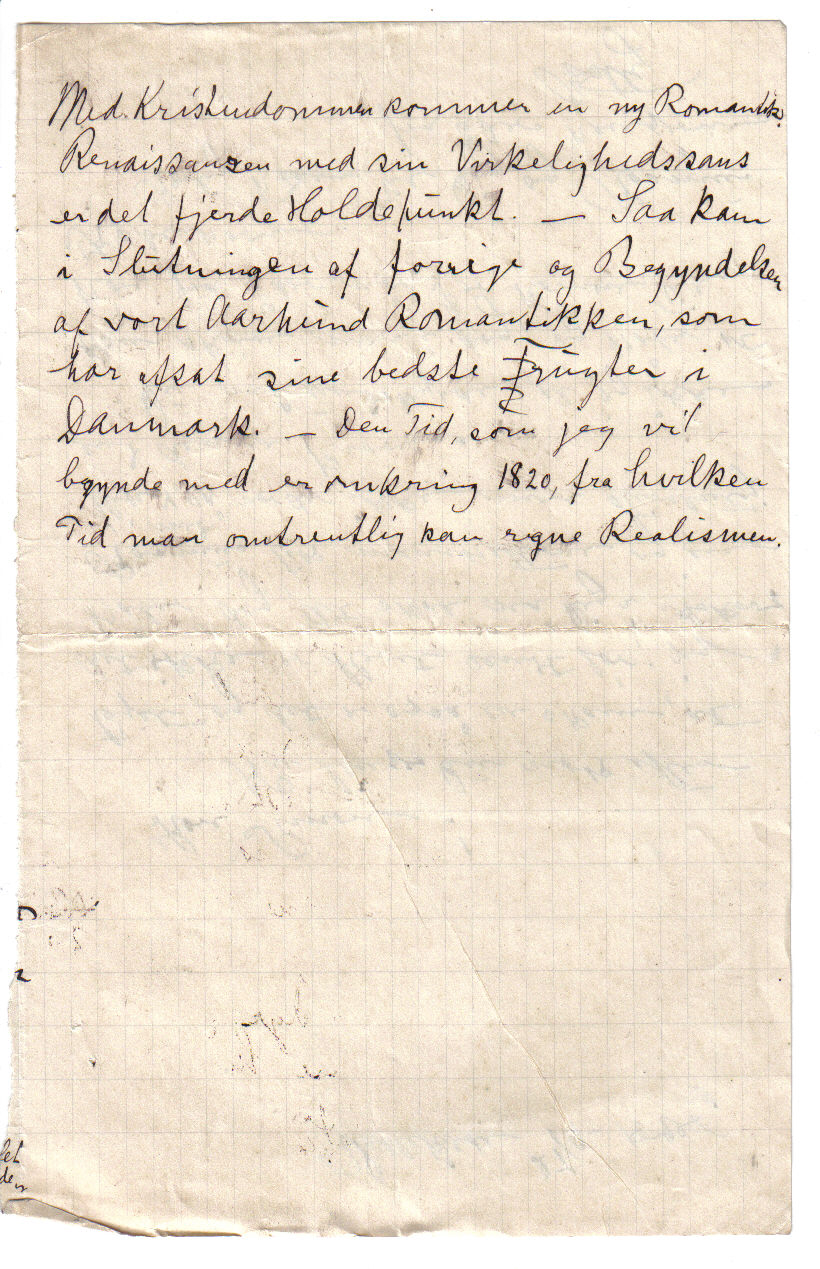 Med Kristendommen kommer en ny Romantik.
Renaissanzen med sin Virkelighedssans
er det fjerde Holdepunkt. — Saa kam
i Slutningen af forrige og Begyndelsen
af vort Aarhund Romantikken, som
har afsat sine bedste Frugter i
Danmark. — Den Tid, som jeg vil
begynde med er omkring 1820, fra hvilken
Tid man omtrentlig kan regne Realismen.
let
den